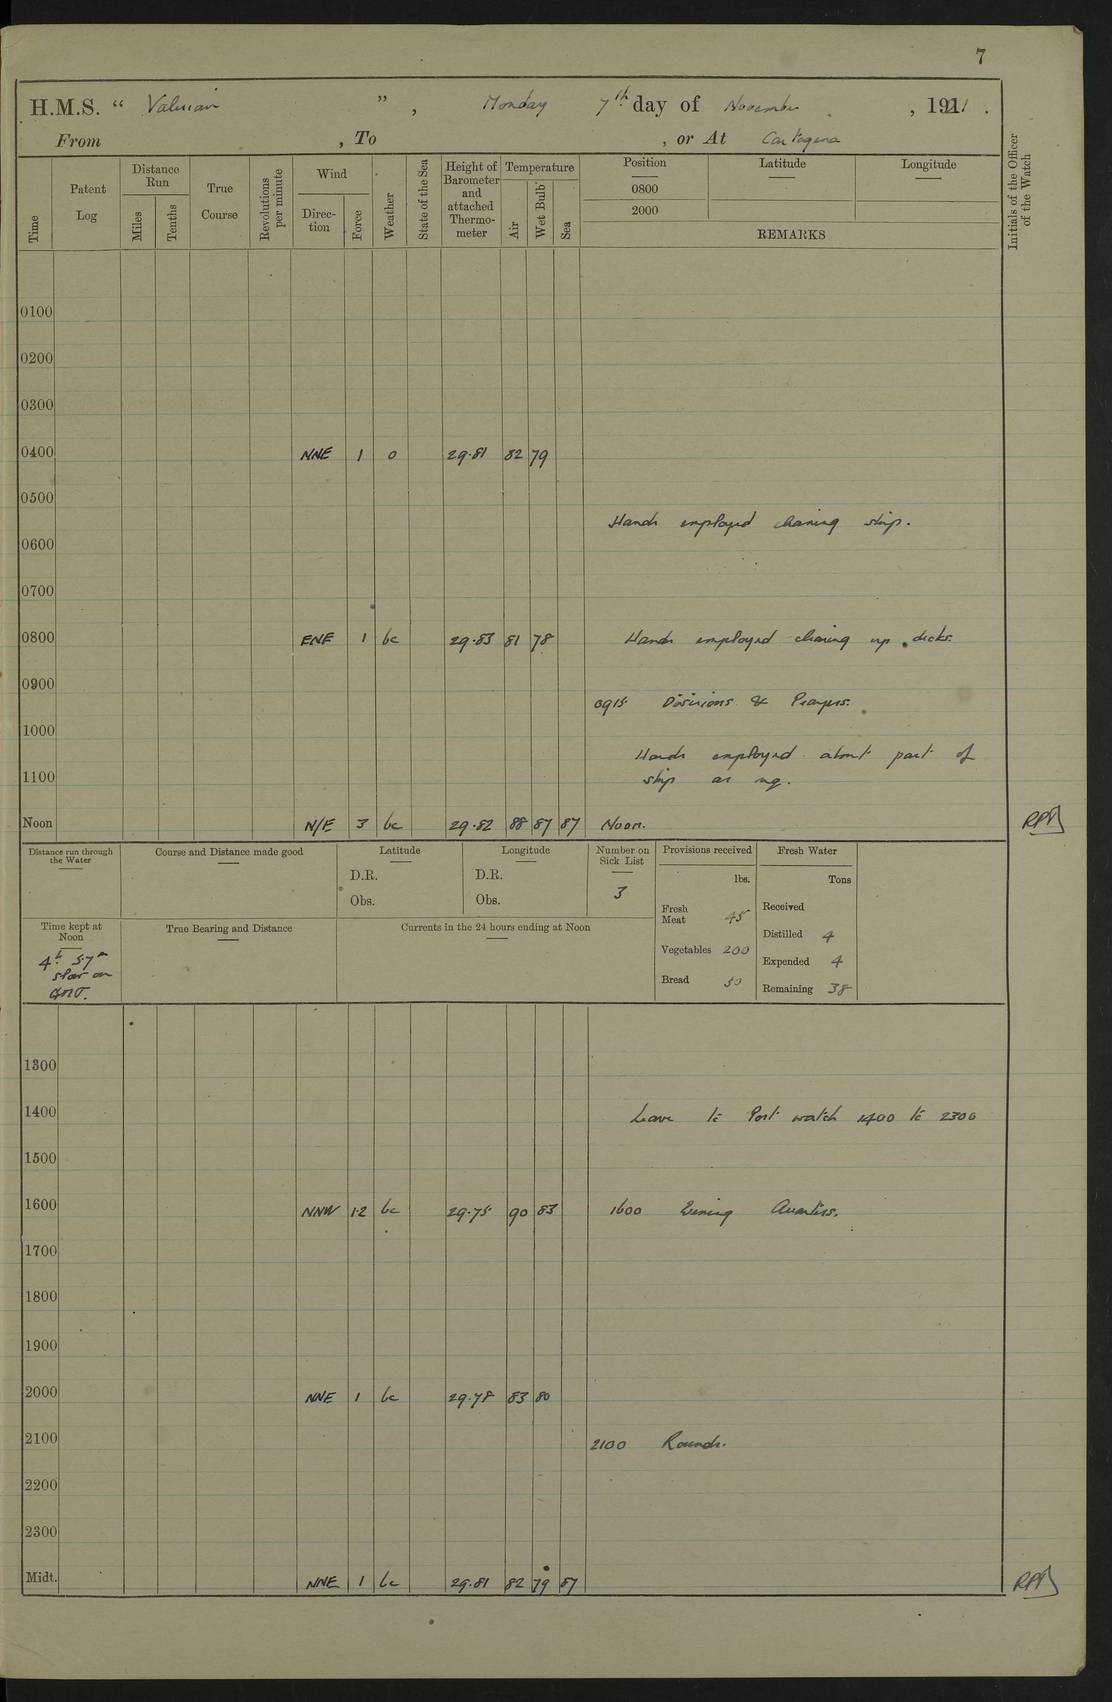 7
H.M.S. “ Valerian ” , Monday 7th day of November , 1921 .
From , To , or At Cartagena
Time
Patent Log
Distance Run
Miles
Tenths
True Course
Revolutions per minute
Wind
Direc- tion
Force
Weather
State of the Sea
Height of Barometer and attached Thermo- meter
Temperature
Air
Wet Bulb
Sea
Position
0800
2000
Latitude
Longitude
REMARKS
Initials of the Officer of the Watch
0100
0200
0300
0400 NNE 1 o 29.81 82 79
0500
Hands employed cleaning ship.
0600
0700
0800 ENE 1 bc 29.83 81 78 Hands employed cleaning up decks.
0900
0915 Divisions & Prayers.
1000
Hands employed about part of
1100 ship as req.
Noon N/E 3 bc 29.82 88 87 87 Noon.
Distance run through the Water
Course and Distance made good
Latitude
D.R.
Obs.
Longitude
D.R.
Obs.
Number on Sick List
3
Provisions received
lbs.
Fresh Meat 45
Vegetables 200
Bread 50
Fresh Water
Tons
Received
Distilled 4
Expended 4
Remaining 38
Time kept at Noon
4h 57m
slow on
GMT.
True Bearing and Distance
Currents in the 24 hours ending at Noon
1300
1400 Leave to Port watch 1400 to 2300
1500
1600 NNW 1.2 bc 29.75 90 83 1600 Evening Quarters.
1700
1800
1900
2000 NNE 1 bc 29.78 83 80
2100 2100 Rounds.
2200
2300
Midt. NNE 1 bc 29.81 82 79 87